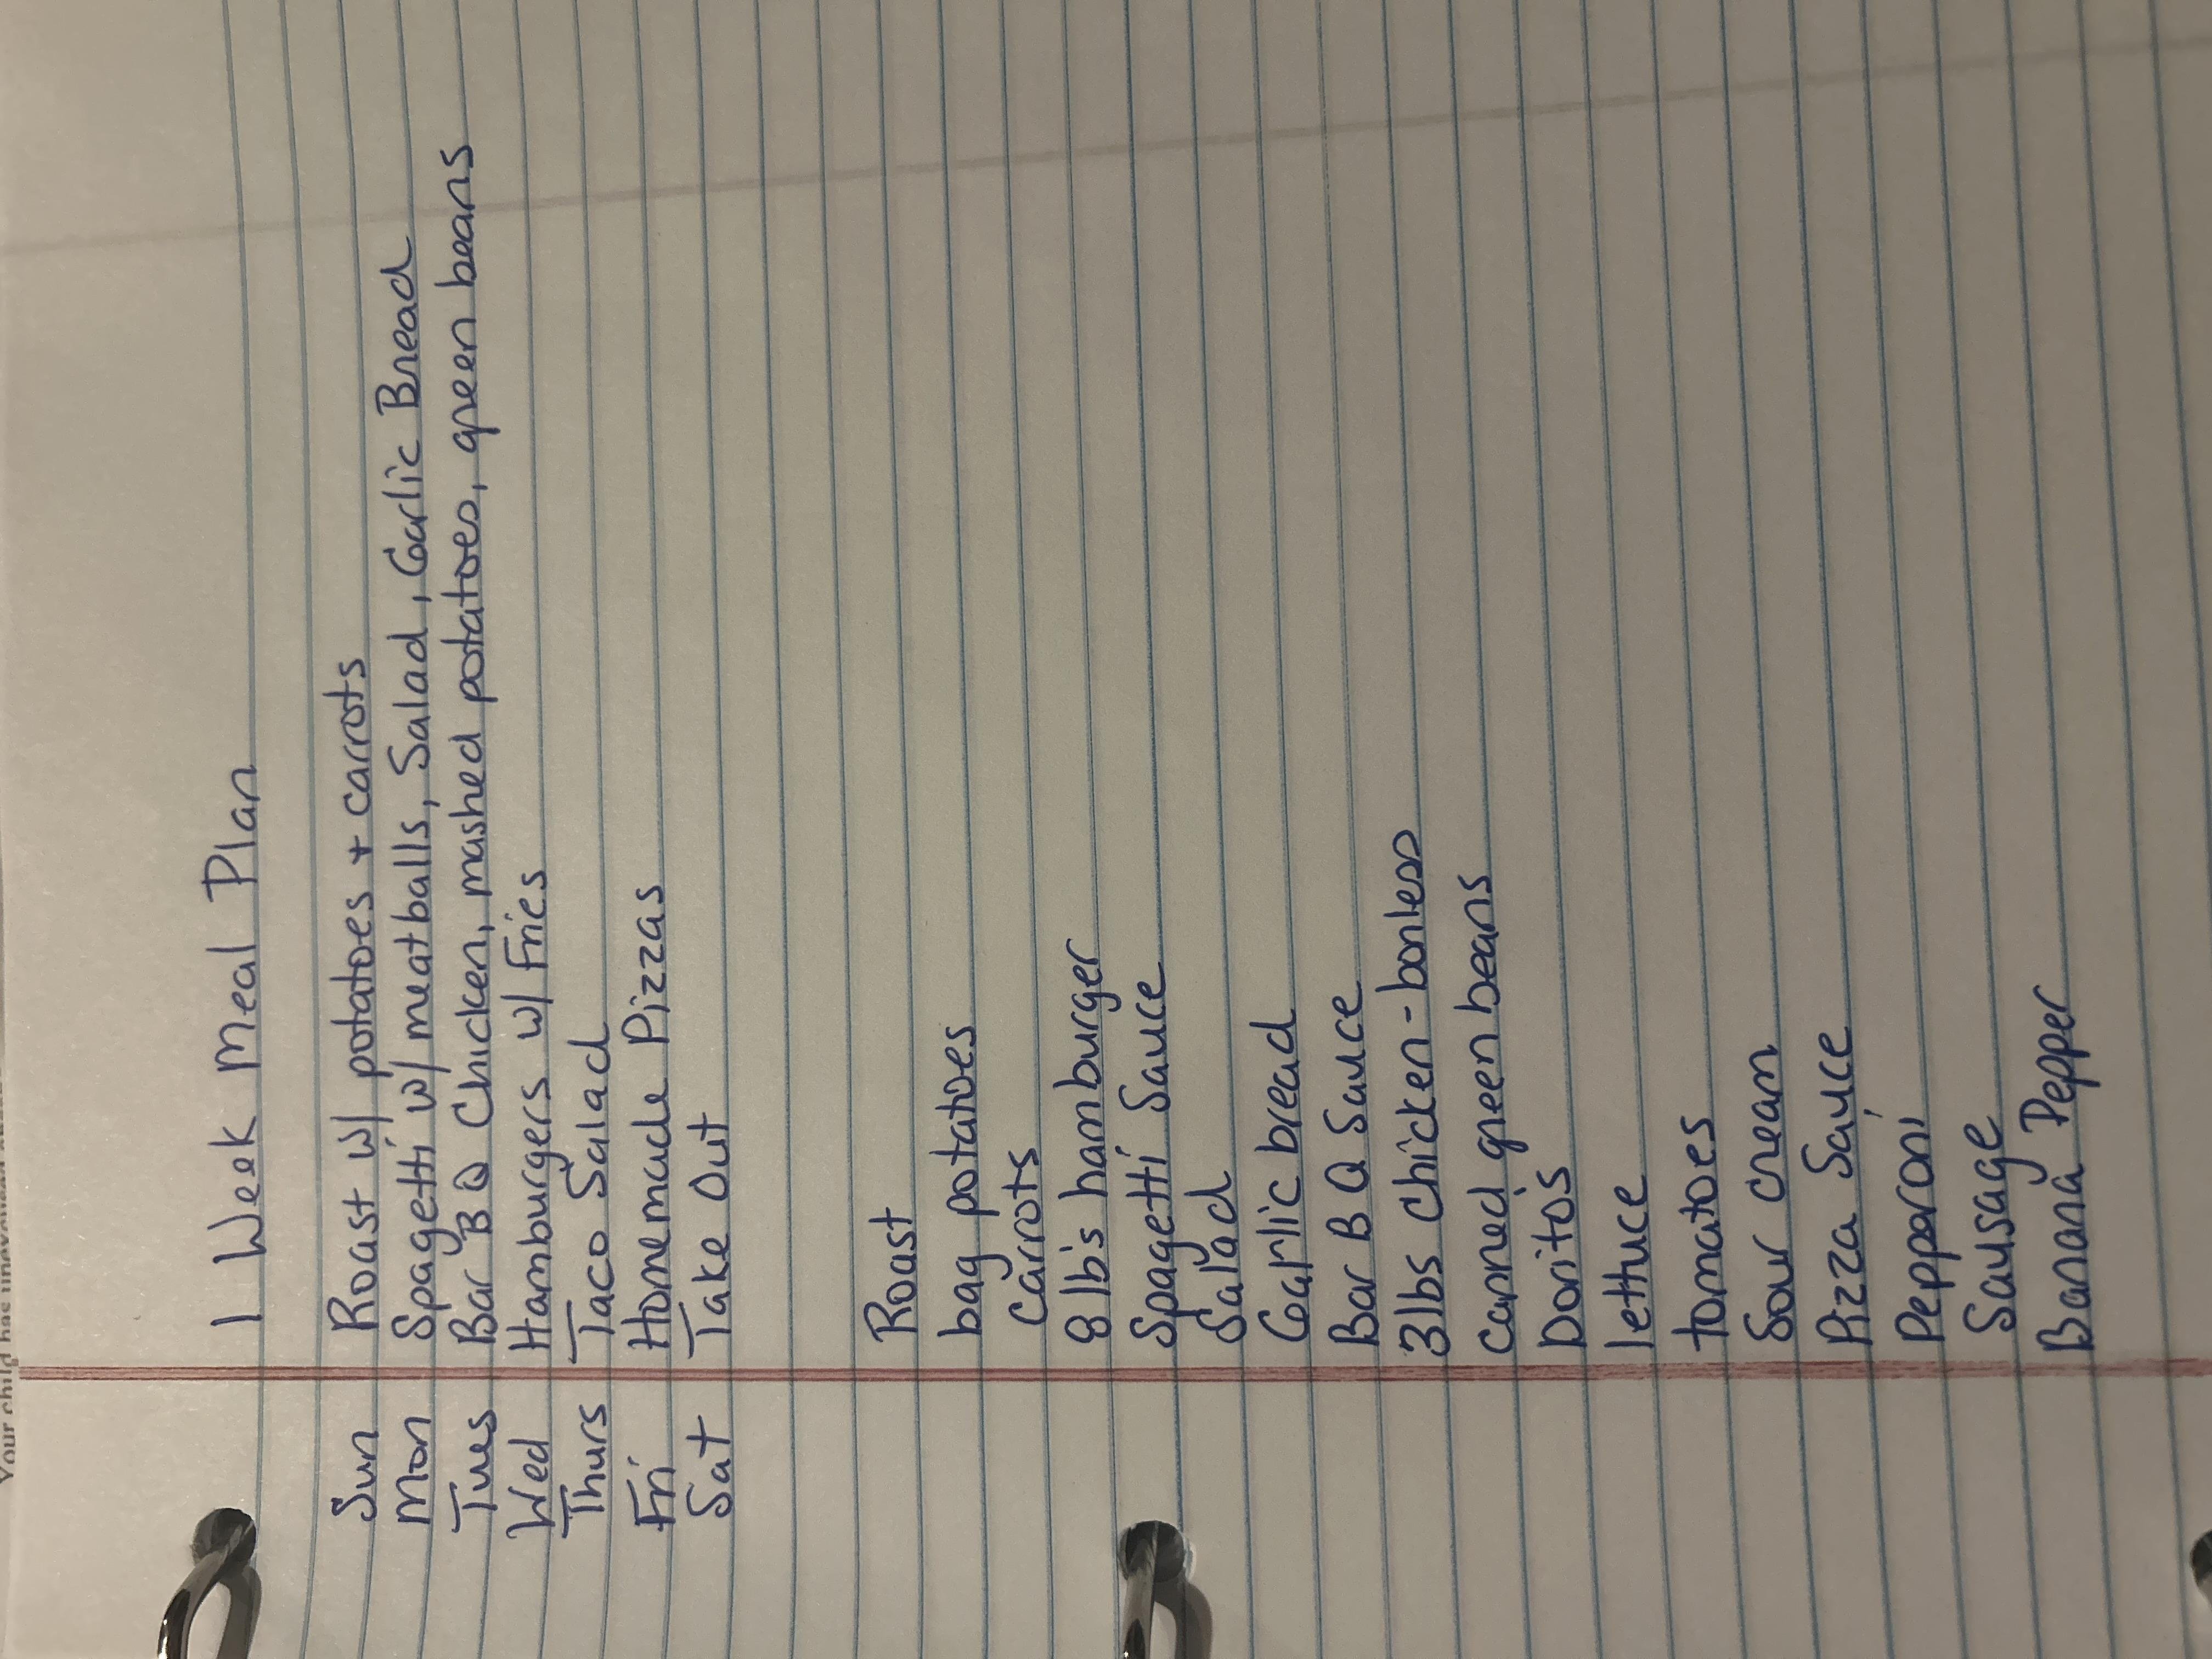 1 Week Meal Plan
Sun Roast w/ potatoes + carrots
Mon Spagetti w/ meatballs, Salad, Garlic Bread
Tues Bar B Q Chicken, mashed potatoes, green beans
Wed Hamburgers w/ Fries
Thurs Taco Salad
Fri Homemade Pizzas
Sat Take Out
Roast
bag potatoes
carrots
8 lb's hamburger
Spagetti Sauce
Salad
Garlic bread
Bar B Q Sauce
3 lbs chicken - bonless
canned green beans
Doritos
lettuce
tomatoes
Sour cream
Pizza Sauce
Pepperoni
Sausage
Banana Pepper